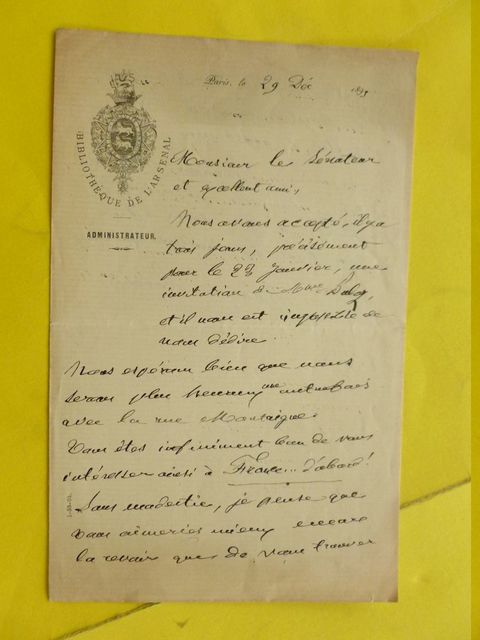 BIBLIOTHÈQUE DE L'ARSENAL
ADMINISTRATEUR.
Paris, le 29 Déc 189
Monsieur le Sénateur
et excellent ami,
Nous avons accepté, il y a
trois jours, précisément
pour le 23 Janvier, une
invitation de Mme
et il nous est impossible de
nous dédire.
Nous espérons bien que nous
serons plus heureux une autre fois
avec la rue Montaigne.
Vous êtes infiniment bon de vous
intéresser ainsi à France.. d'abord!
Sans modestie, je pense que
vous aimeriez mieux encore
la revoir que de vous trouver